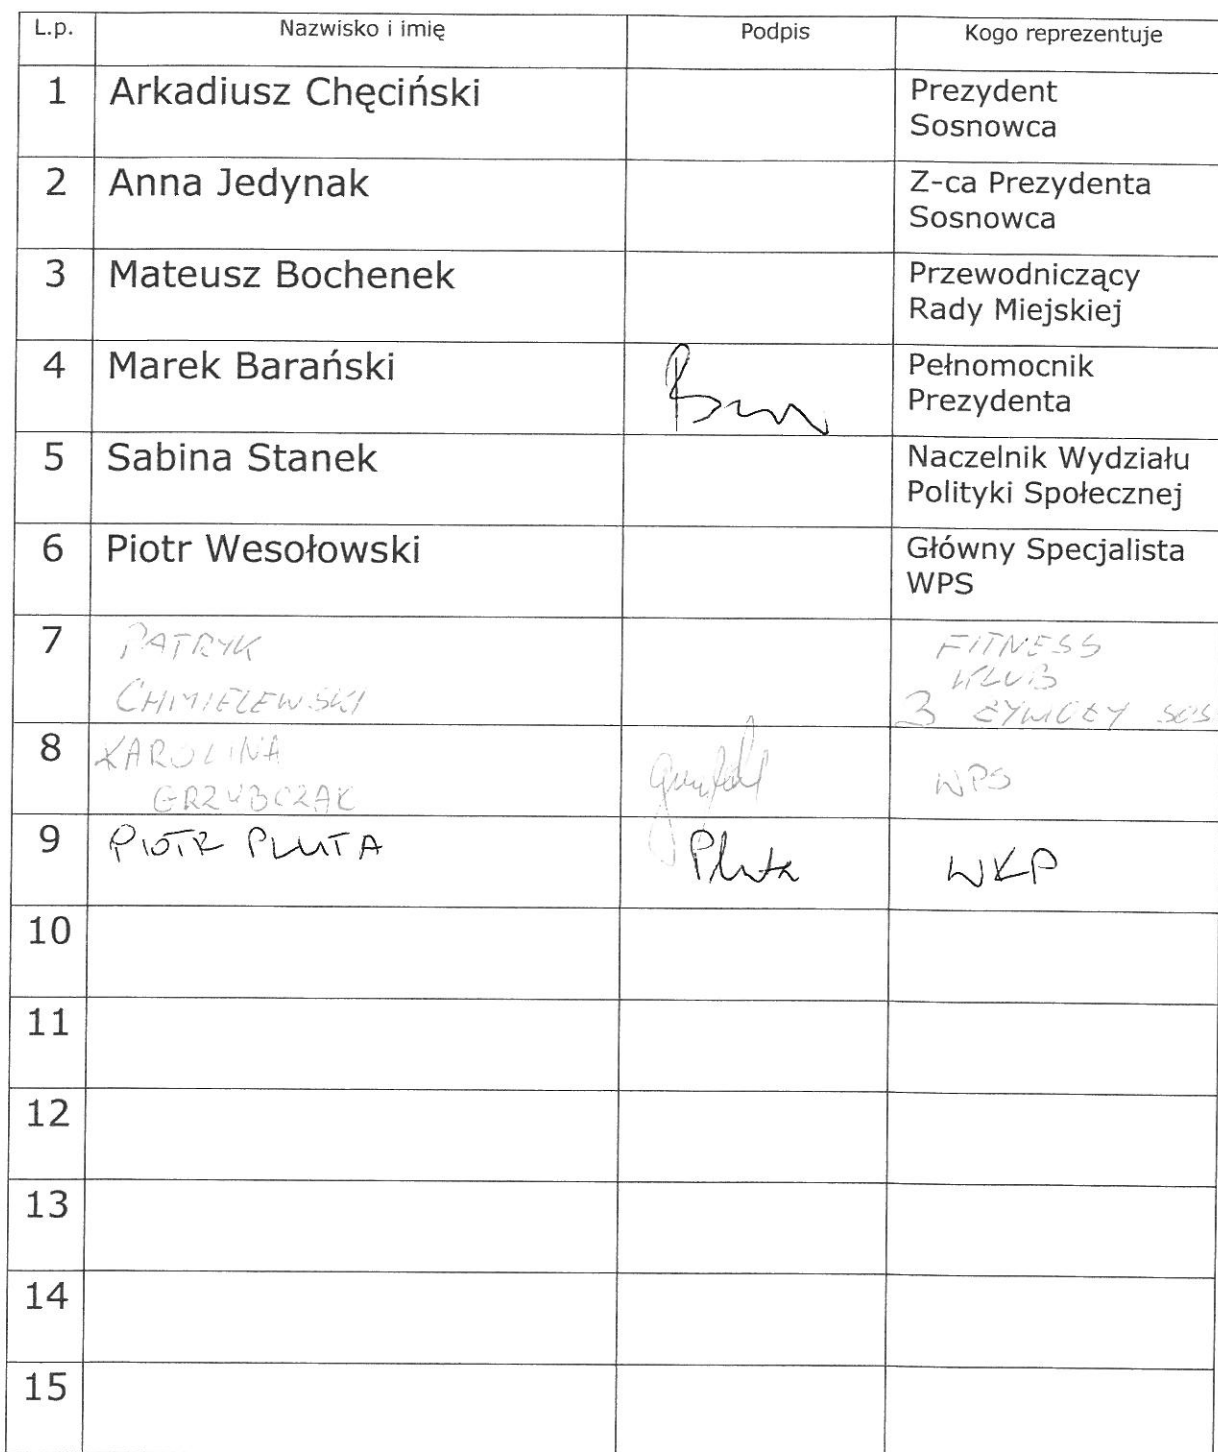 L.p. Nazwisko i imię Podpis Kogo reprezentuje
1 Arkadiusz Chęciński Prezydent
Sosnowca
2 Anna Jedynak Z-ca Prezydenta
Sosnowca
3 Mateusz Bochenek Przewodniczący
Rady Miejskiej
4 Marek Barański Pełnomocnik
Prezydenta
5 Sabina Stanek Naczelnik Wydziału
Polityki Społecznej
6 Piotr Wesołowski Główny Specjalista
WPS
7 PATRYK FITNESS
KLUB
CHMIELEWSKI 3 SOS
8 KAROLINA WPS
GRZYBCZAK
9 PIOTR PLUTA Pluta WKP
10
11
12
13
14
15